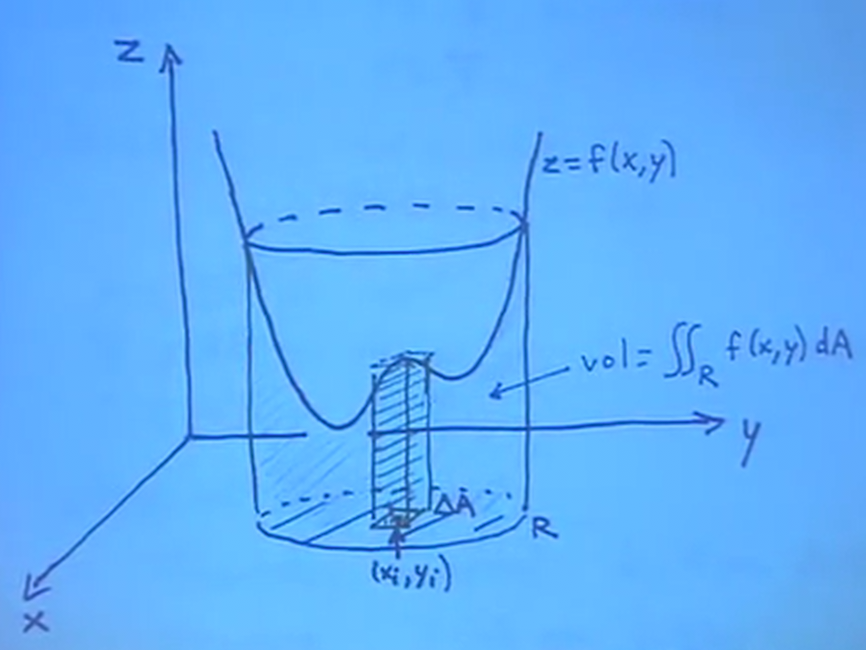 z
z=f(x,y)
vol=∬_R f(x,y)dA
y
ΔA
R
(xi,yi)
x